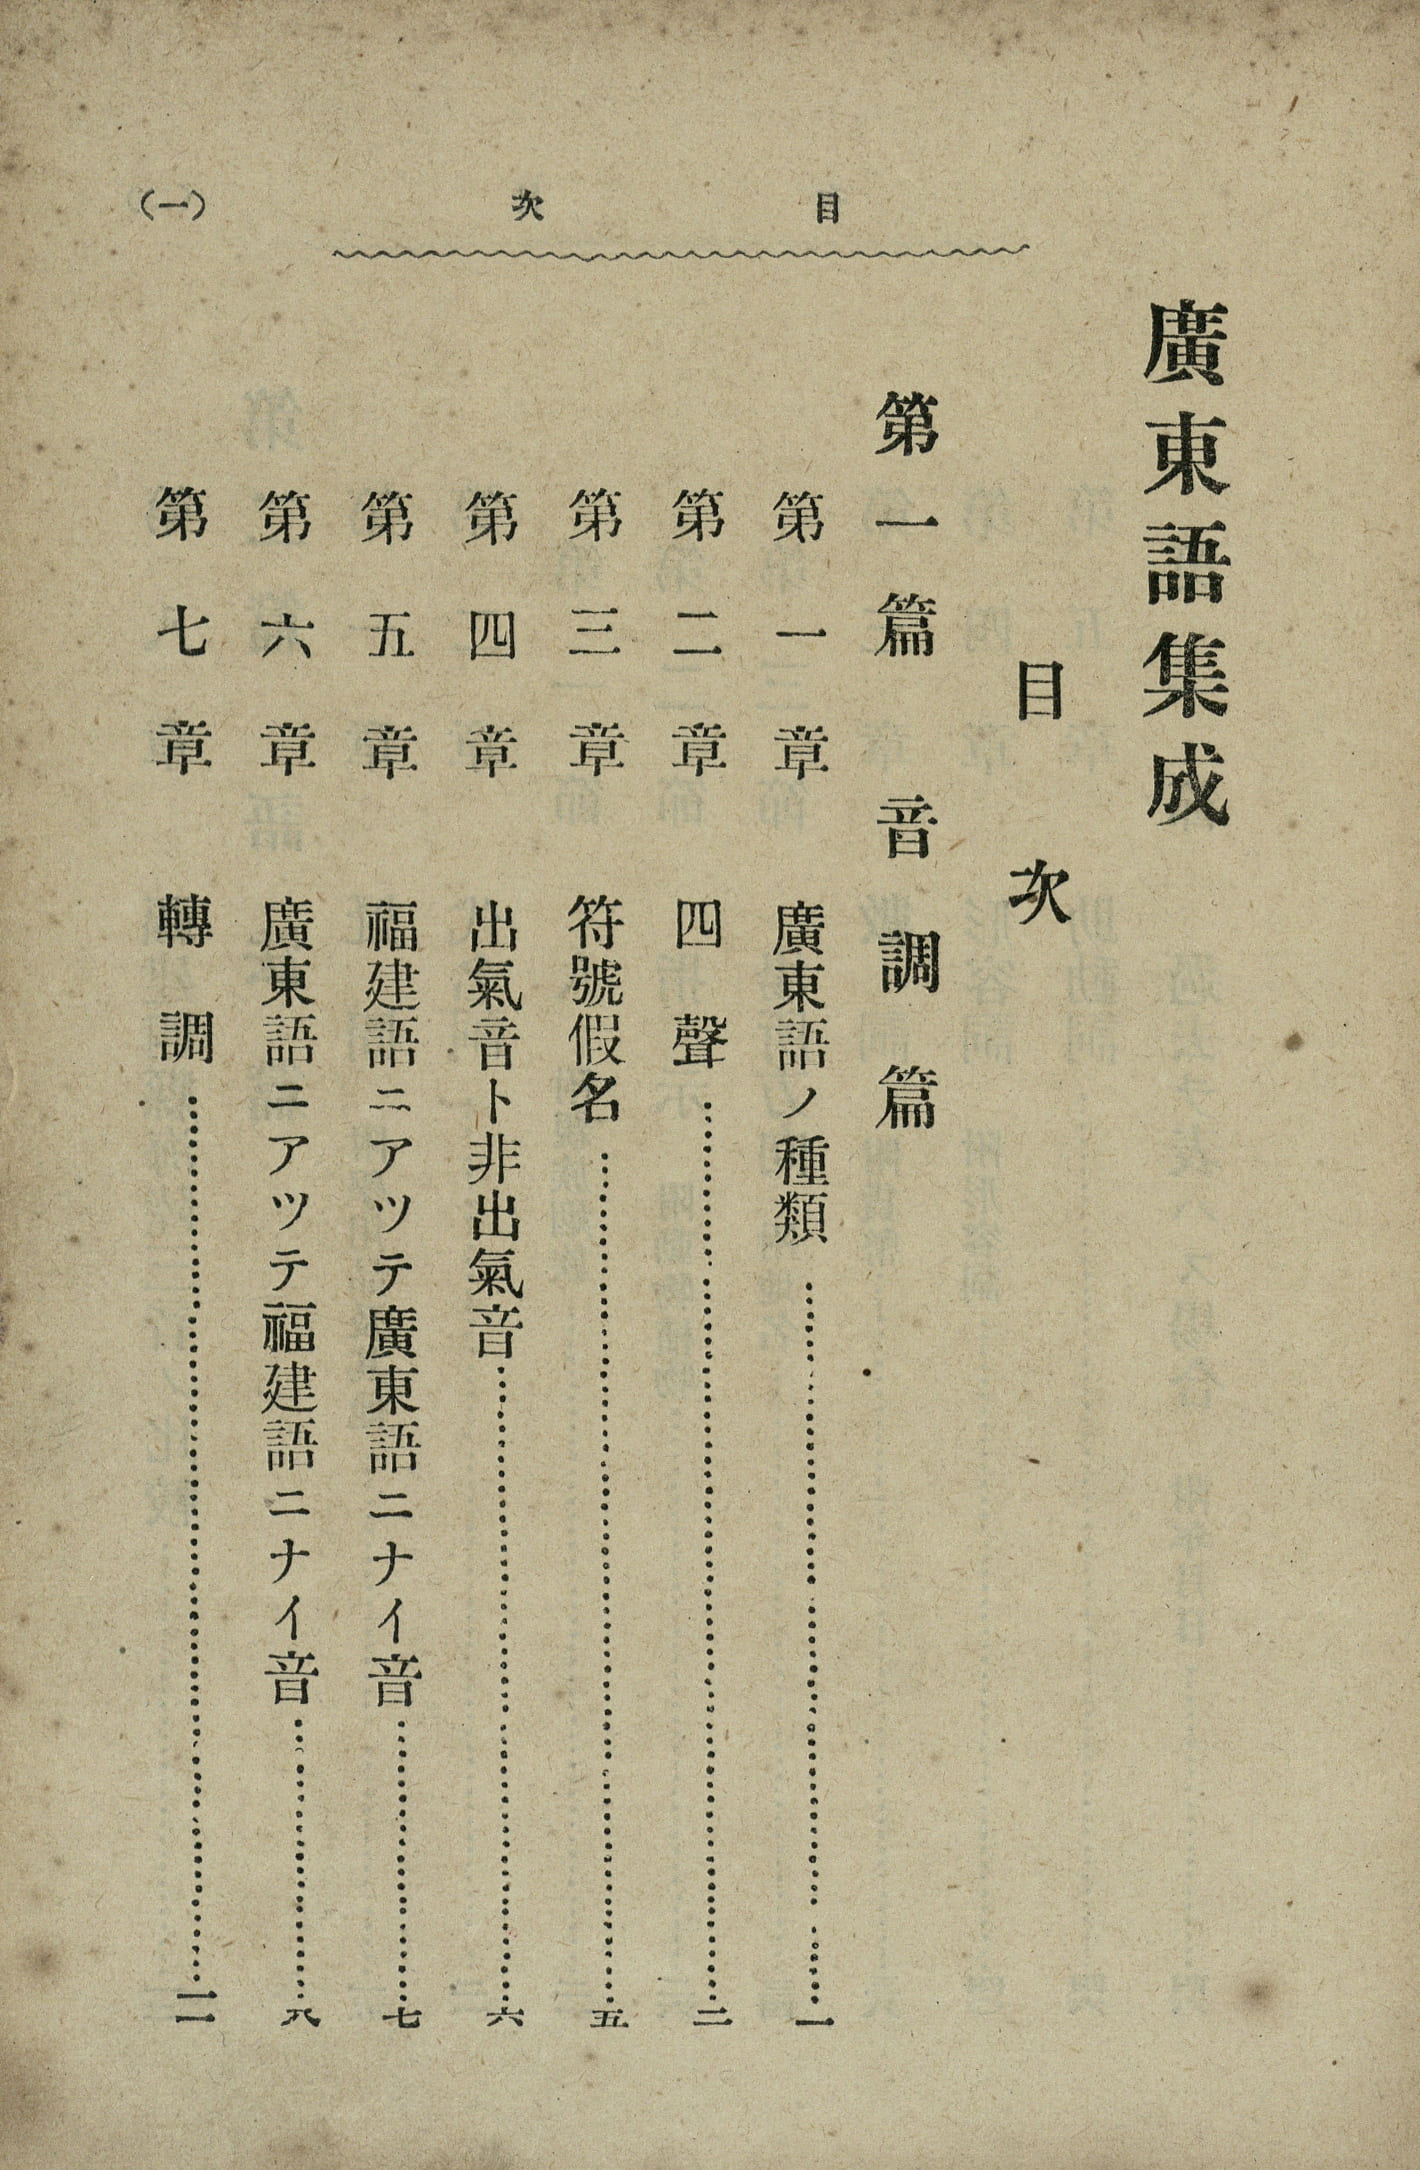 目次
(一)
廣東語集成
目次
第一篇 音調篇
第一章 廣東語ノ種類……一
第二章 四聲……二
第三章 符號假名……五
第四章 出氣音ト非出氣音……六
第五章 福建語ニアツテ廣東語ニナイ音……七
第六章 廣東語ニアツテ福建語ニナイ音……八
第七章 轉調……一二